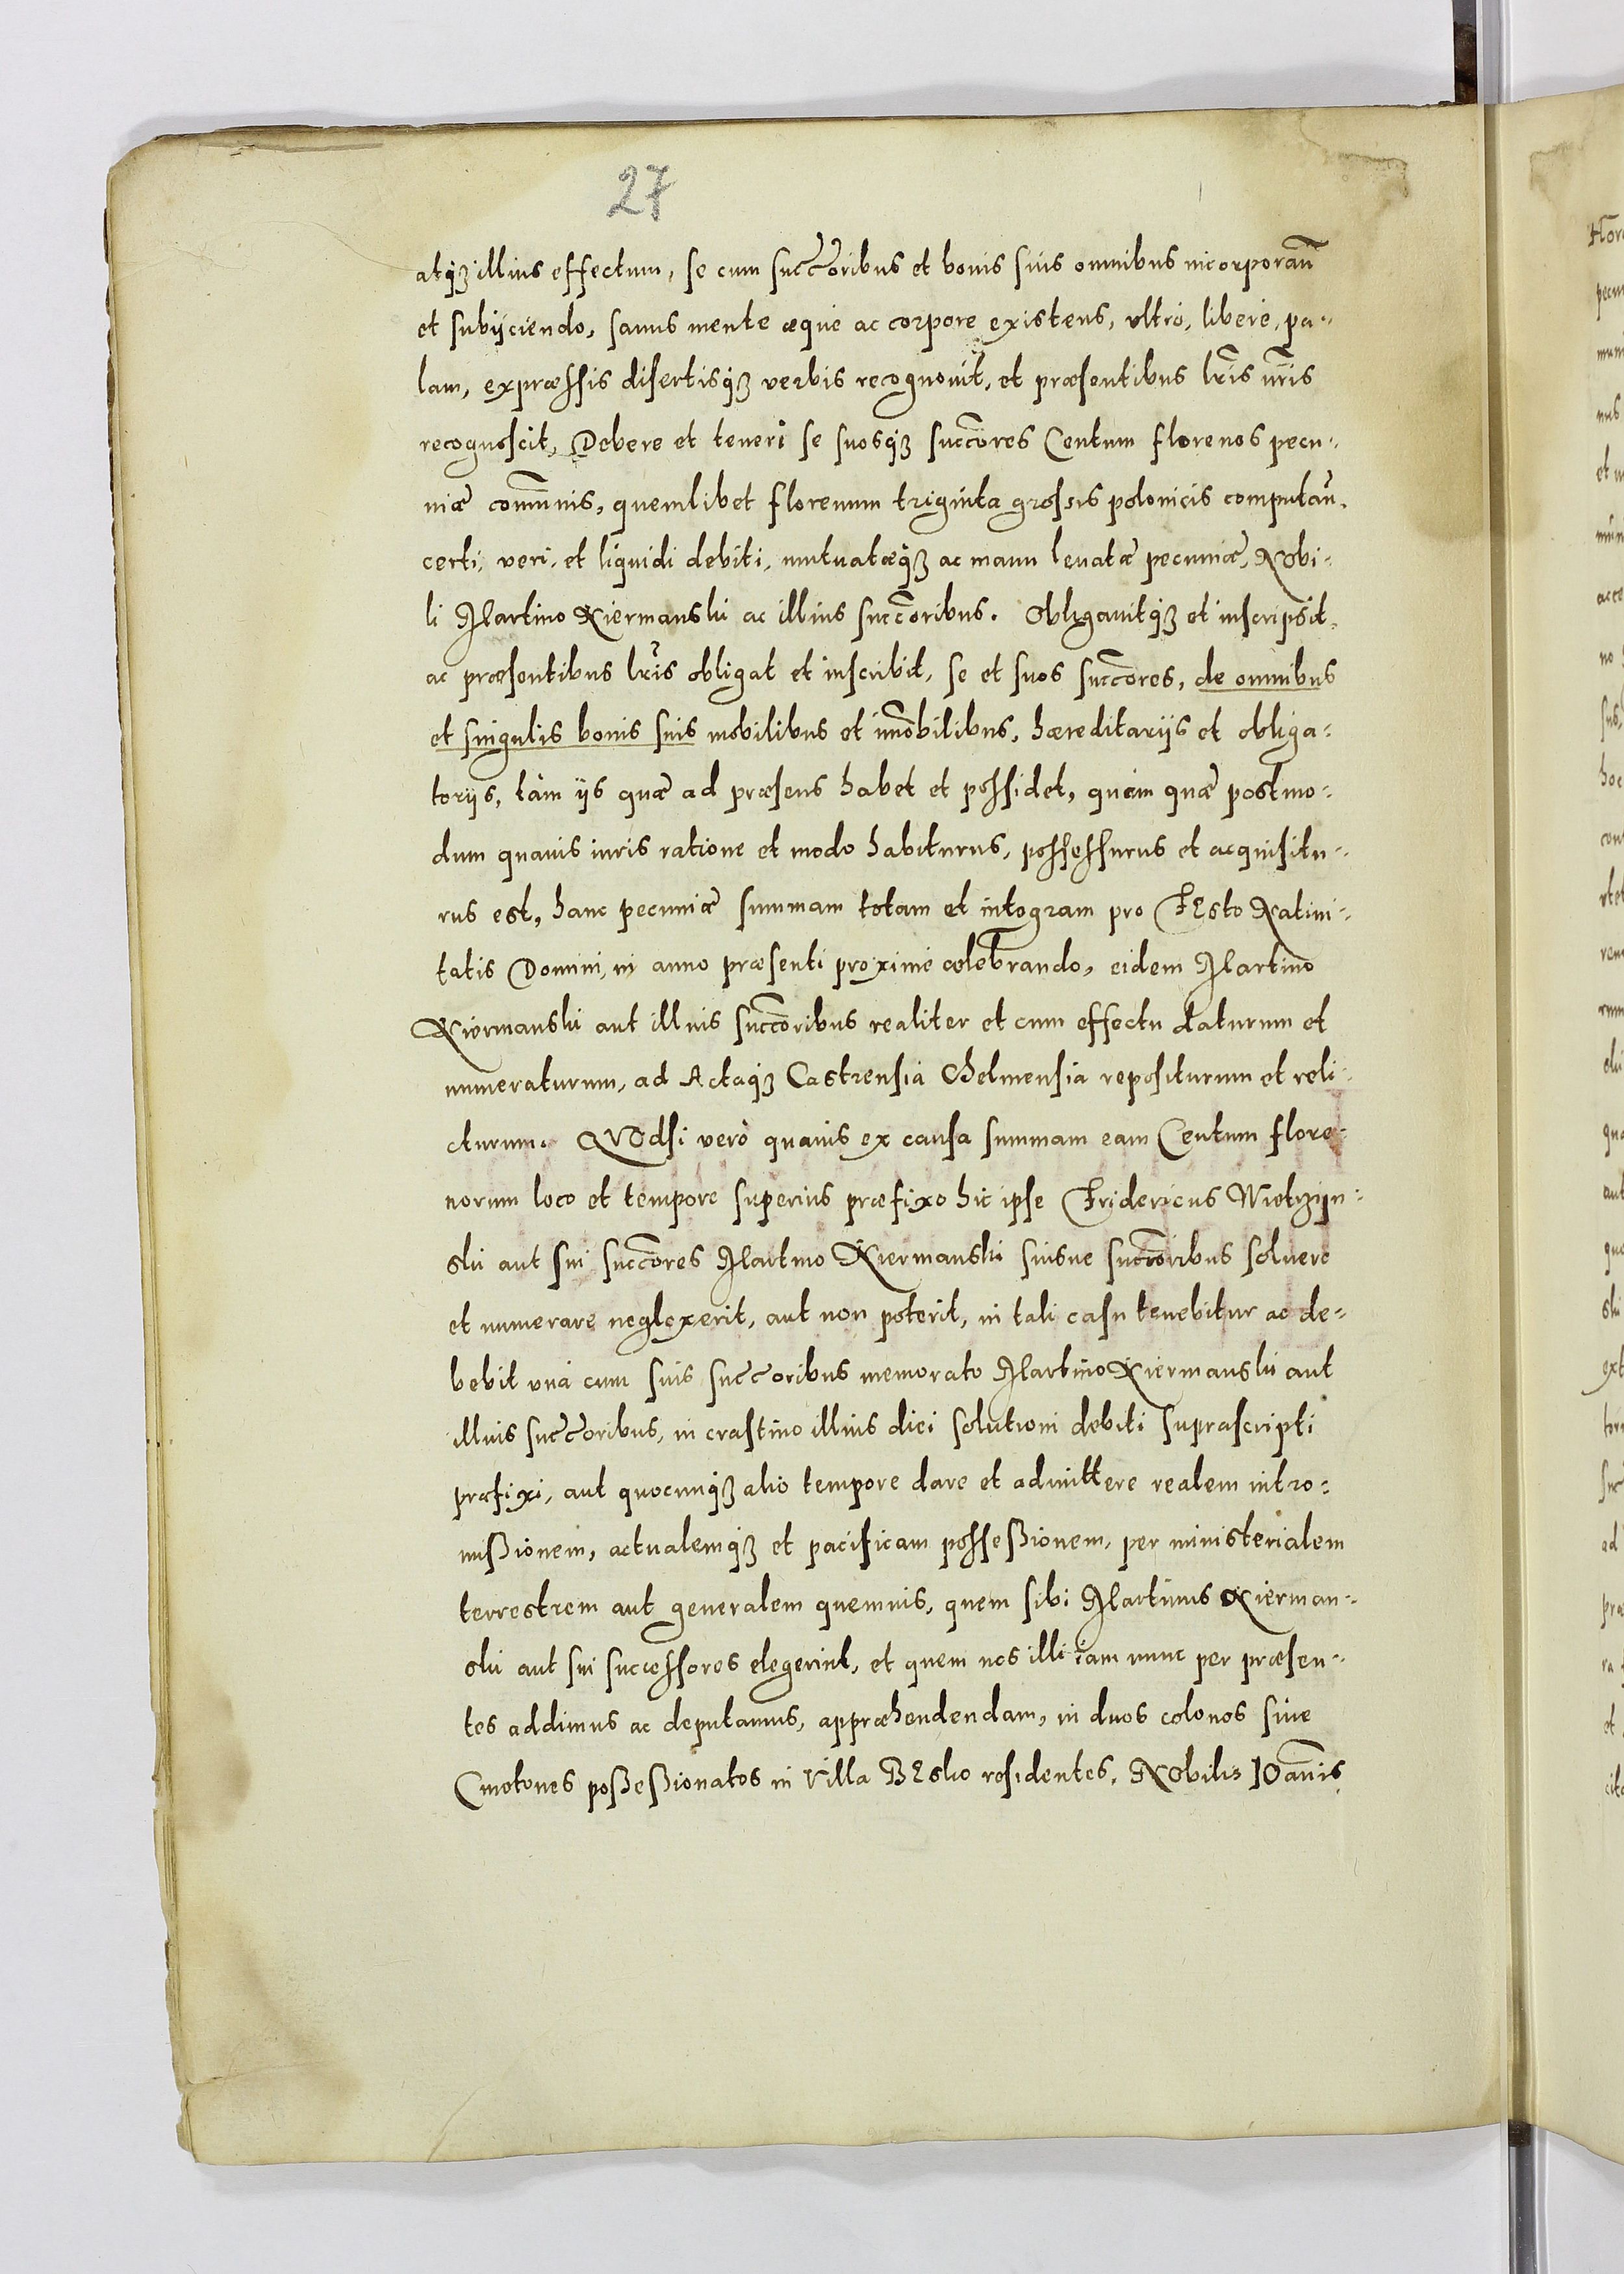 27
atq₃ illius effectum, se cum succ̃oribus et bonis suis omnibus incorporan̄
et subijciendo, sanus mente æque ac corpore existens, vltrò, liberè, pa-
lam, expræssis disertisq₃ verbis recognouit, et præsentibus lr̃is nr̃is
recognoscit, Debere et teneri se suosq₃ succ̃ores Centum florenos pecu-
niæ com̃unis, quemlibet florenum triginta grossis polonicis computan̄.
certi, veri, et liquidi debiti, mutuatæq₃ ac manu leuatæ pecuniæ, NObi-
li Martino Niermanski ac illius succ̃oribus. Obligauitq₃ et inscripsit,
ac præsentibus lr̃is obligat et inscribit, se et suos succ̃ores, de omnibus
et singulis bonis suis mobilibus et im̃obilibus, hæreditarijs et obliga-
torijs, tàm ijs quæ ad præsens habet et possidet, quàm quæ postmo-
dum quauis iuris ratione et modo habiturus, possessurus et acquisitu-
rus est, hanc pecuniæ summam totam et integram pro FEsto Natiui-
tatis Domini, in anno præsenti proximè celebrando, eidem Martino
Niermanski aut illius succ̃oribus realiter et cum effectu daturum et
numeraturum, ad Actaq₃ Castrensia Chelmensia repositurum et reli-
cturum. QVOdsi verò quauis ex causa summam eam Centum flore-
norum loco et tempore superius præfixo hic ipse Fridericus Wietrzijn-
ski aut sui succ̃ores Martino Niermanski suisue succ̃oribus soluere
et numerare neglexerit, aut non poterit, in tali casu tenebitur ac de-
bebit vnà cum suis succ̃oribus memorato Martino Niermanski aut
illius succ̃oribus, in crastino illius diei solutioni debiti suprascripti
præfixi, aut quocunq₃ alio tempore dare et admittere realem intro-
mißionem, actualemq₃ et pacificam posseßionem, per ministerialem
terrestrem aut generalem quemuis, quem sibi Martinus Nierman-
ski aut sui successores elegerint, et quem nos illi iam nunc per præsen-
tes addimus ac deputamus, appræhendendam, in duos colonos siue
Cmetones poßeßionatos in Villa BEsko residentes, NObilis IOan̄is